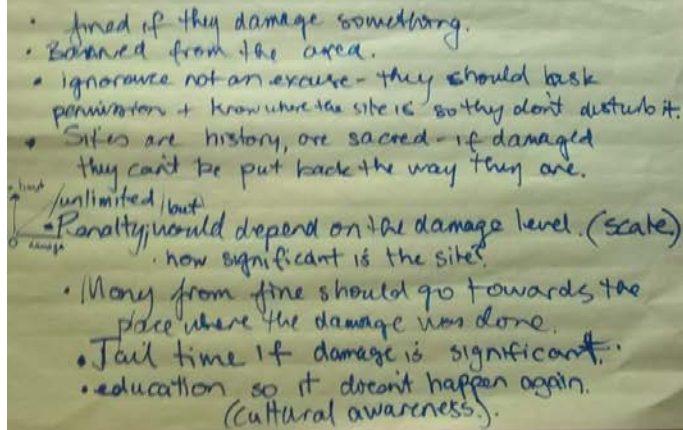 • fined if they damage something.
• Banned from the area.
• ignorance not an excuse - they should ask
permission + know where the site is so they don't disturb it.
• Sites are history, are sacred - if damaged
they can't be put back the way they are.
/unlimited/but
• Penalty, would depend on the damage level. (scale)
damage
• how significant is the site?
• Mony from fine should go towards the
place where the damage was done.
• Jail time if damage is significant.
• education so it doesn't happen again.
(cultural awareness.).